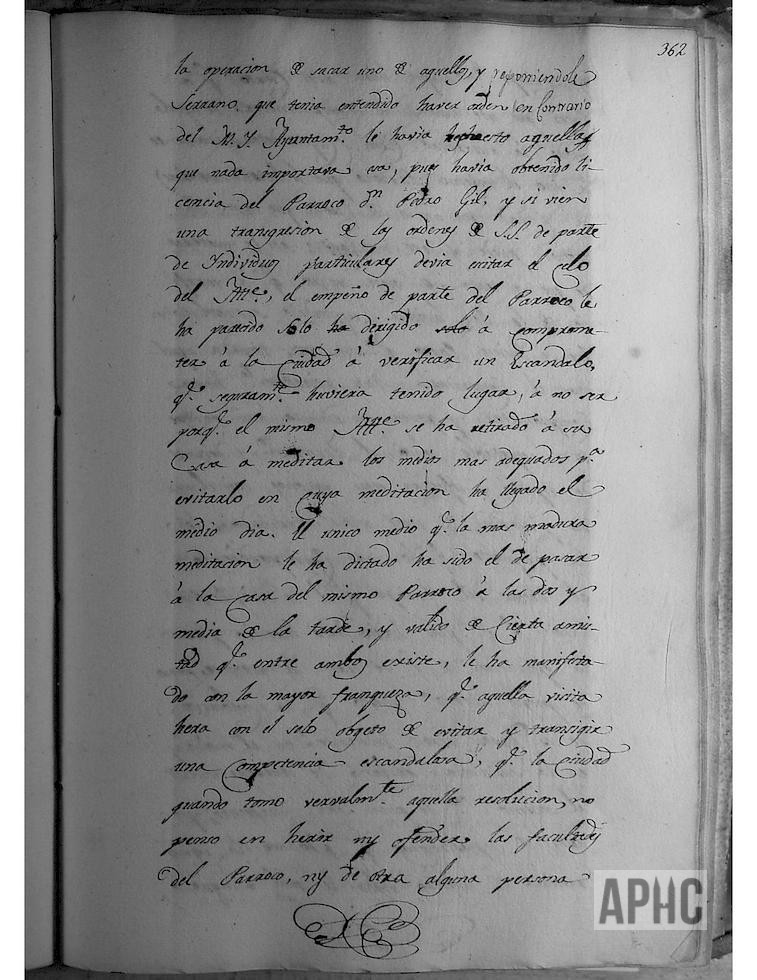 362
la operacion de sacar uno de aquellos, y reponiendole
Serrano que tenia entendido haver orden en Contrario
del M. Y. Ayuntamto. le havia aquella
que nada importava esa, pues havia obtenido li-
cencia del Parroco Dn. Pedro Gil, y si vien
una transgresion de los ordenes de S.S. de parte
de Yndividuos particulares devia excitar el celo
del, el empeño de parte del Parroco le
ha parecido solo ha dirigido solo á comprome-
ter á la Ciudad á verificar un Escandalo,
q.e seguramte. huviera tenido lugar, á no ser
porq.e el mismo se ha retirado á su
Casa á meditar los medios mas adequados pa.
evitarlo en cuya meditacion ha llegado el
medio dia. El unico medio q.e la mas madura
meditacion le ha dictado ha sido el de pasar
á la Casa del mismo Parroco á las dos y
media de la tarde, y valido de Cierta amis-
tad q.e entre ambos existe, le ha manifesta-
do con la mayor franqueza, q.e aquella vicita
hera con el solo obgeto de evitar y transigir
una Competencia escandalosa, q.e la Ciudad
quando tomo vervalmte. aquella resolucion, no
penso en herir ny ofender las facultades
del Parroco, ny de otra alguna persona
APHC